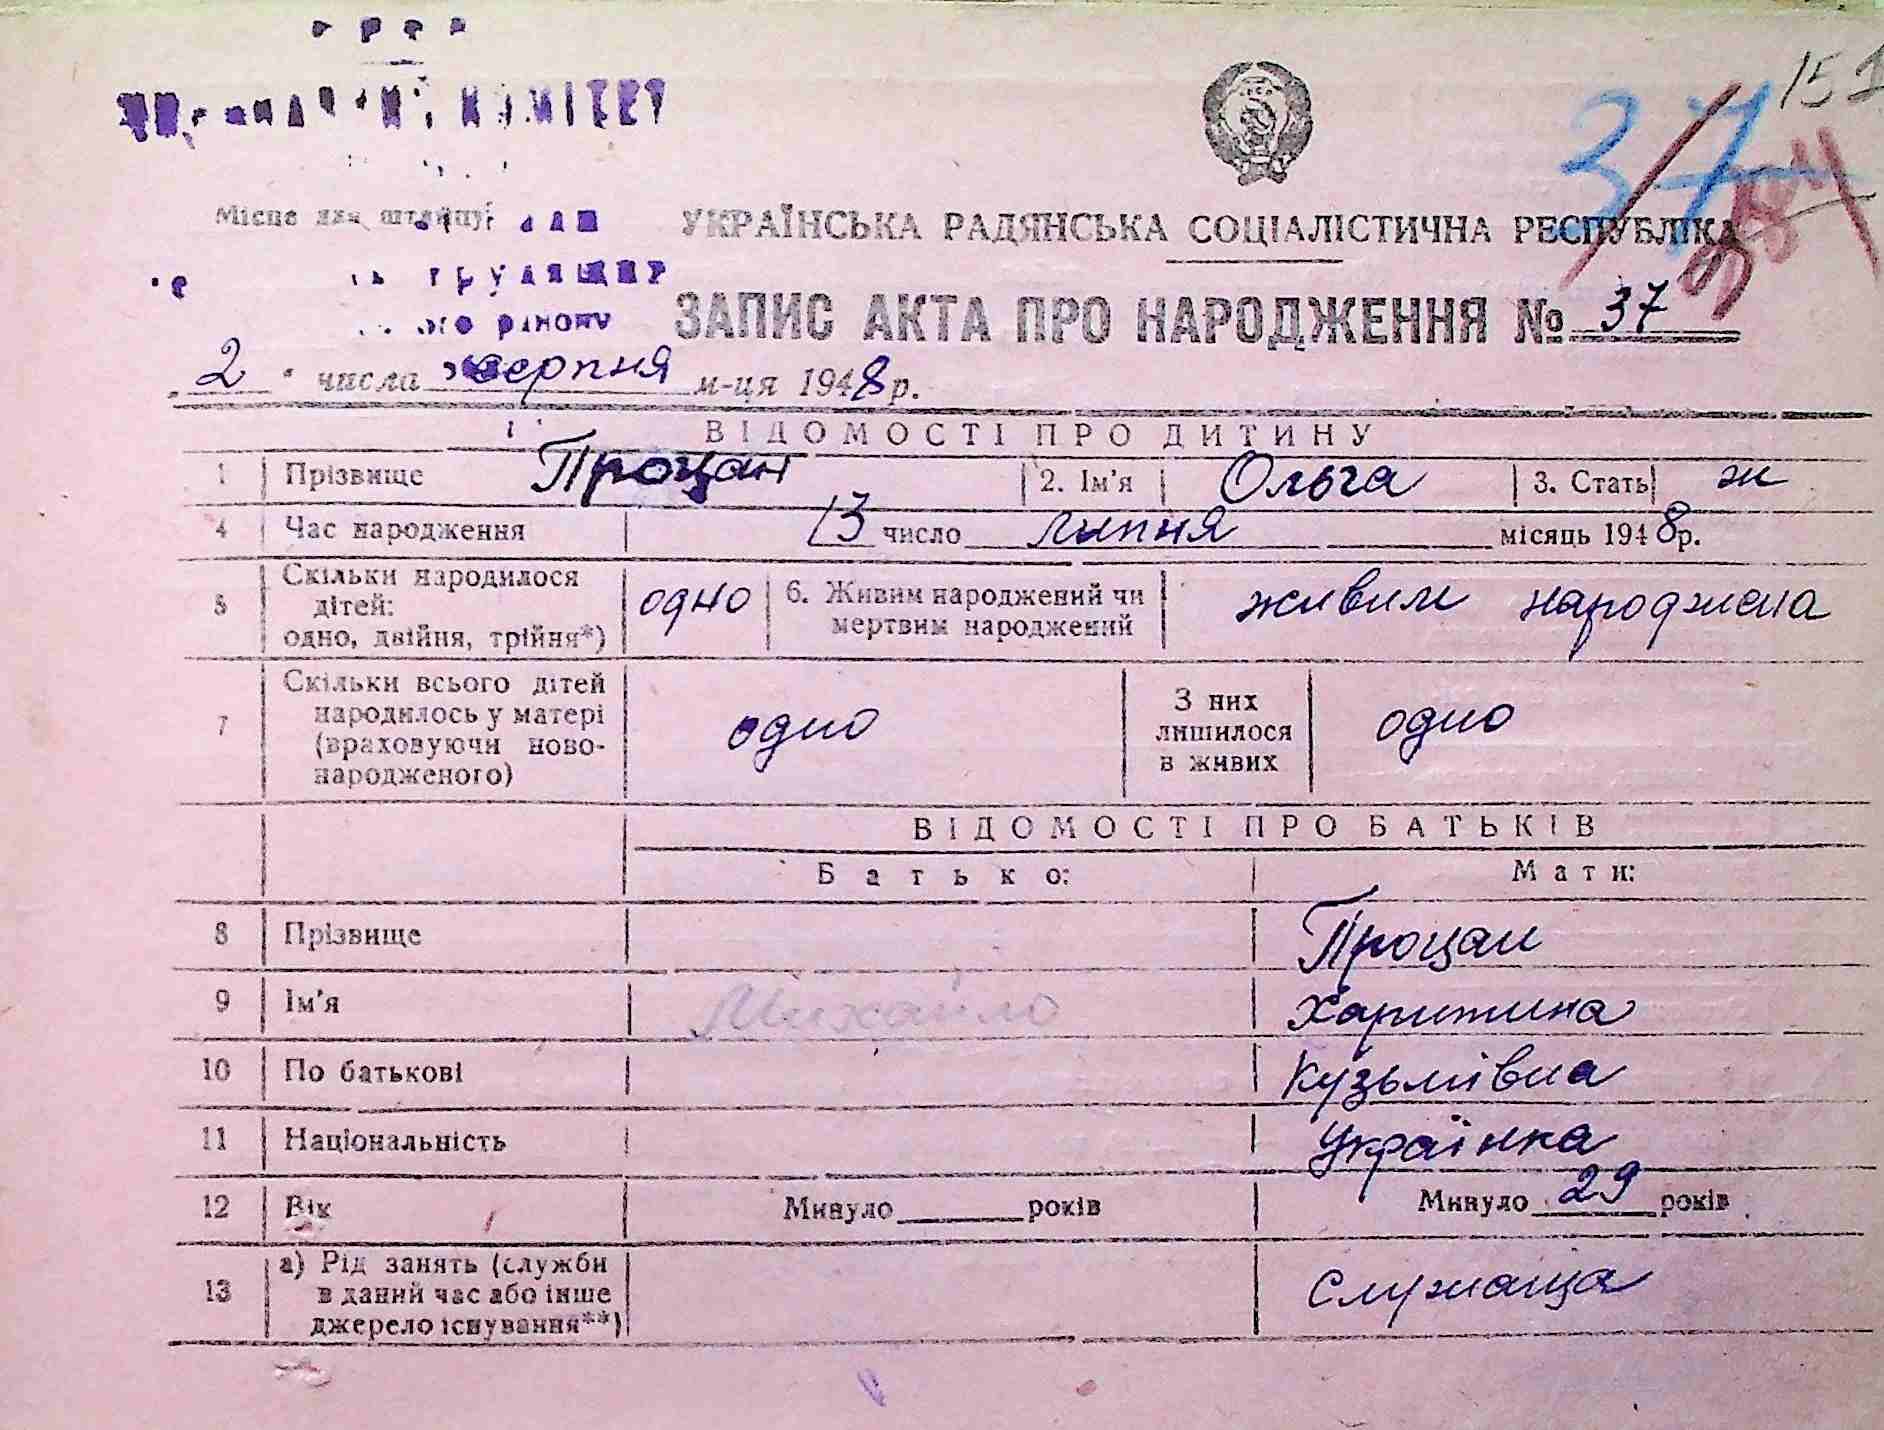 УРСР
ВИКОНАВЧИЙ КОМІТЕТ
151
37
384
Місце для штампу
трудящих
УКРАЇНСЬКА РАДЯНСЬКА СОЦІАЛІСТИЧНА РЕСПУБЛІКА
ЗАПИС АКТА ПРО НАРОДЖЕННЯ № 37
2 " числа серпня м-ця 1948 р.
ВІДОМОСТІ ПРО ДИТИНУ
1 Прізвище Процан 2. Ім'я Ольга 3. Стать ж
4 Час народження 13 число липня місяць 1948 р.
5 Скільки народилося дітей: одно, двійня, трійня*) одно 6. Живим народжений чи мертвим народжений живим народжена
7 Скільки всього дітей народилось у матері (враховуючи ново-народженого) одно З них лишилося в живих одно
ВІДОМОСТІ ПРО БАТЬКІВ
Батько: Мати:
8 Прізвище Процан
9 Ім'я Михайло Харитина
10 По батькові Кузьмівна
11 Національність Українка
12 Вік Минуло ______ років Минуло 29 років
13 а) Рід занять (служби в даний час або інше джерело існування**) Служаща